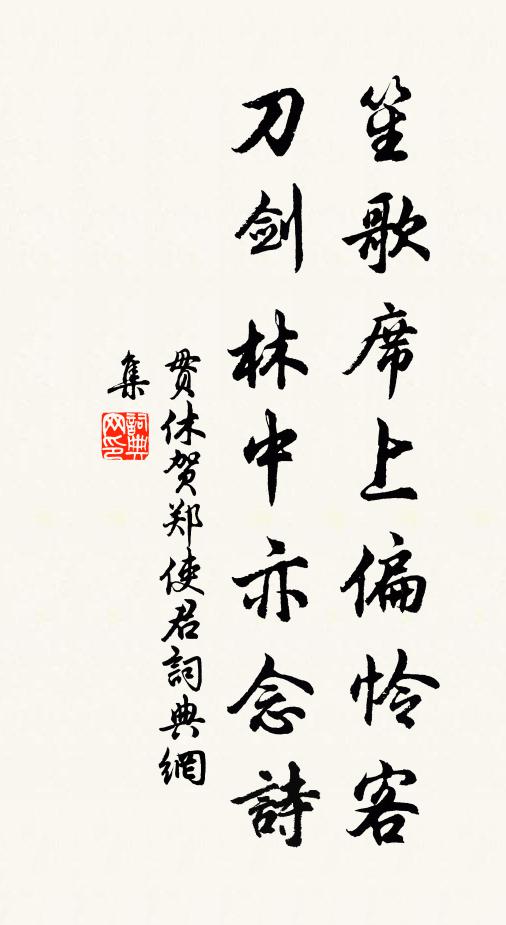 笙歌席上偏怜客
刀剑林中亦念詩
贯休贺郑使君詞典網
集
詞典
网印